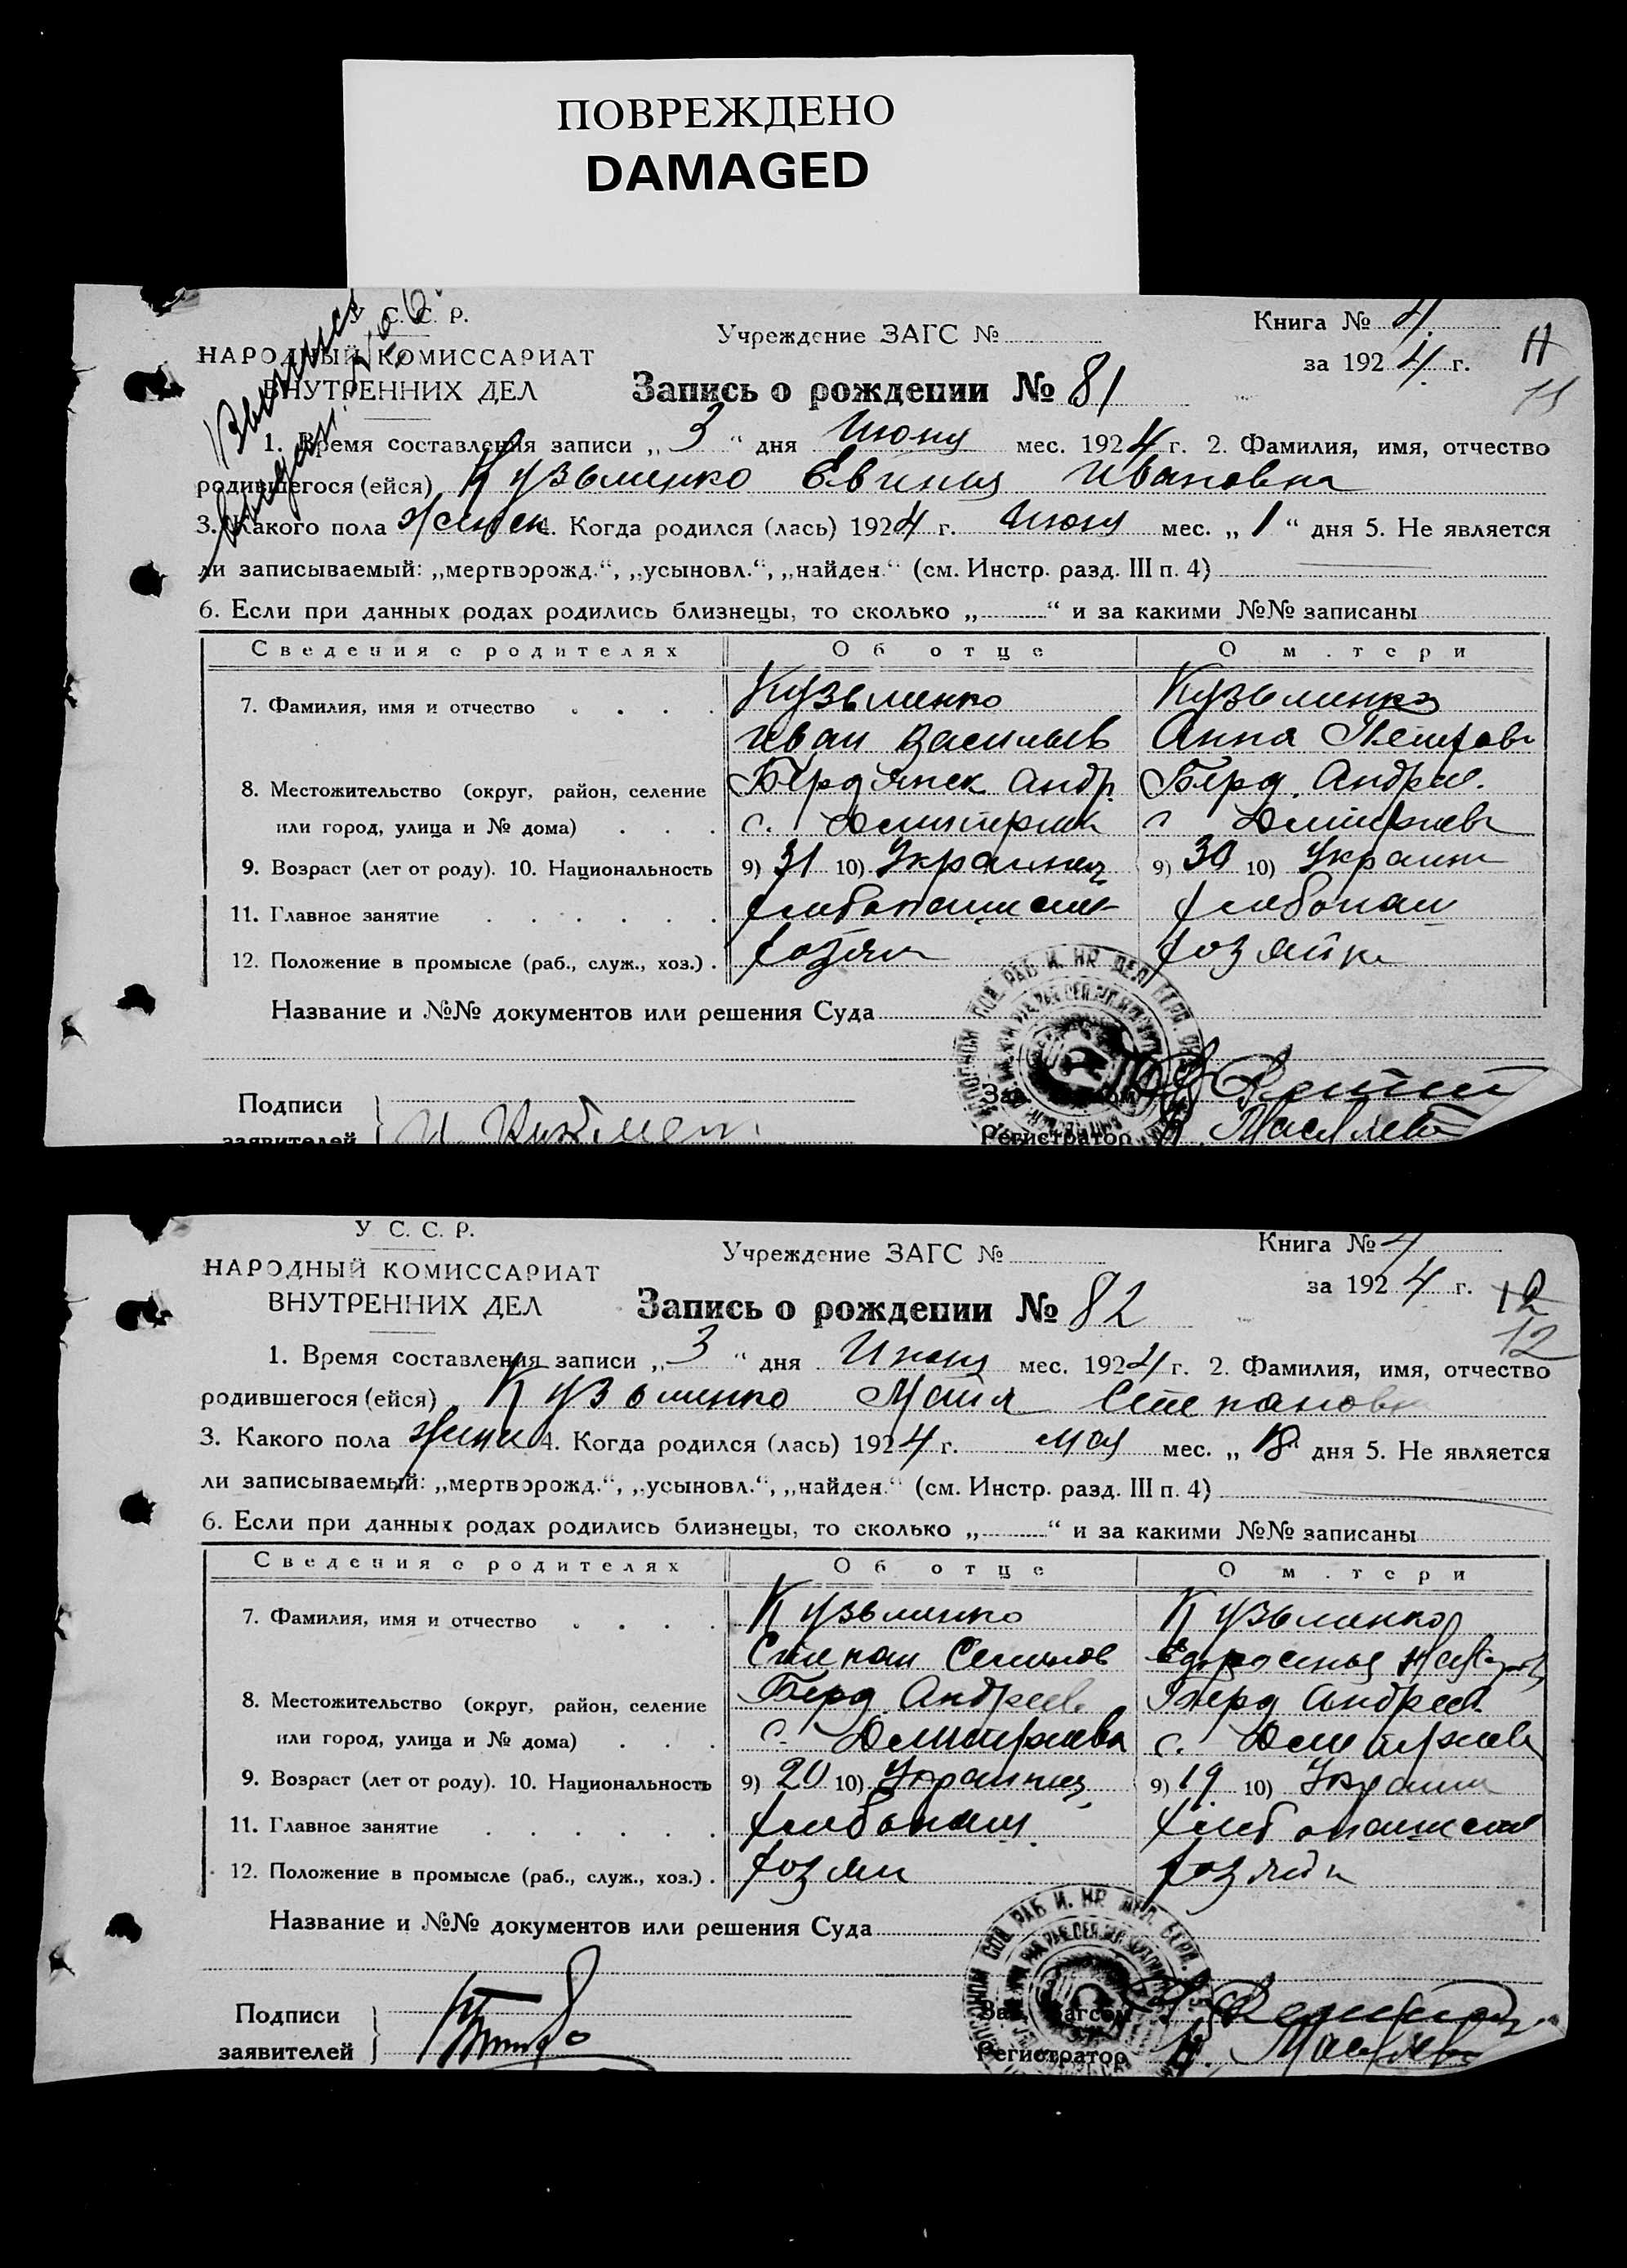 ПОВРЕЖДЕНО
DAMAGED
С. С. Р.
НАРОДНЫЙ КОМИССАРИАТ
ВНУТРЕННИХ ДЕЛ
Учреждение ЗАГС №
Книга № 4
за 1924 г.
11
11
Запись о рождении № 81
1. Время составления записи „ 3 “ дня Июня мес. 1924 г. 2. Фамилия, имя, отчество
родившегося (ейся) Кузьменко Евгения Ивановна
3. Какого пола женск 4. Когда родился (лась) 1924 г. Июня мес. „ 1 “ дня 5. Не является
ли записываемый: „мертворожд.“, „усыновл.“, „найден.“ (см. Инстр. разд. III п. 4)
6. Если при данных родах родились близнецы, то сколько „ “ и за какими №№ записаны
Сведения о родителях Об отце О м.тери
7. Фамилия, имя и отчество Кузьменко Кузьменко
Иван Васильев Анна Петров
8. Местожительство (округ, район, селение Бердянск Андр. Берд. Андрее.
или город, улица и № дома) с. Дмитриев с Дмитриев
9. Возраст (лет от роду). 10. Национальность 9) 31 10) Украинец 9) 30 10) Украин
11. Главное занятие хлебопашест хлебопаш
12. Положение в промысле (раб., служ., хоз.) хозяин хозяйка
Название и №№ документов или решения Суда
Подписи
заявителей
Регистратор
У С. С. Р.
НАРОДНЫЙ КОМИССАРИАТ
ВНУТРЕННИХ ДЕЛ
Учреждение ЗАГС №
Книга № 4
за 1924 г.
12
12
Запись о рождении № 82
1. Время составления записи „ 3 “ дня Июня мес. 1924 г. 2. Фамилия, имя, отчество
родившегося (ейся) Кузьменко Маия Степановн
3. Какого пола женск 4. Когда родился (лась) 1924 г. мая мес. „ 18 дня 5. Не является
ли записываемый: „мертворожд.“, „усыновл.“, „найден.“ (см. Инстр. разд. III п. 4)
6. Если при данных родах родились близнецы, то сколько „ “ и за какими №№ записаны
Сведения о родителях Об отце О м.тери
7. Фамилия, имя и отчество Кузьменко Кузьменко
Степан Семенов
8. Местожительство (округ, район, селение Берд. Андреев Берд Андреев.
или город, улица и № дома) с. Дмитриевка с. Дмитриев
9. Возраст (лет от роду). 10. Национальность 9) 20 10) Украинец 9) 19 10) Украин
11. Главное занятие хлебопаш. хлебопашест
12. Положение в промысле (раб., служ., хоз.) хозяин хозяйк
Название и №№ документов или решения Суда
Подписи
заявителей
Зав. Загсом
Регистратор